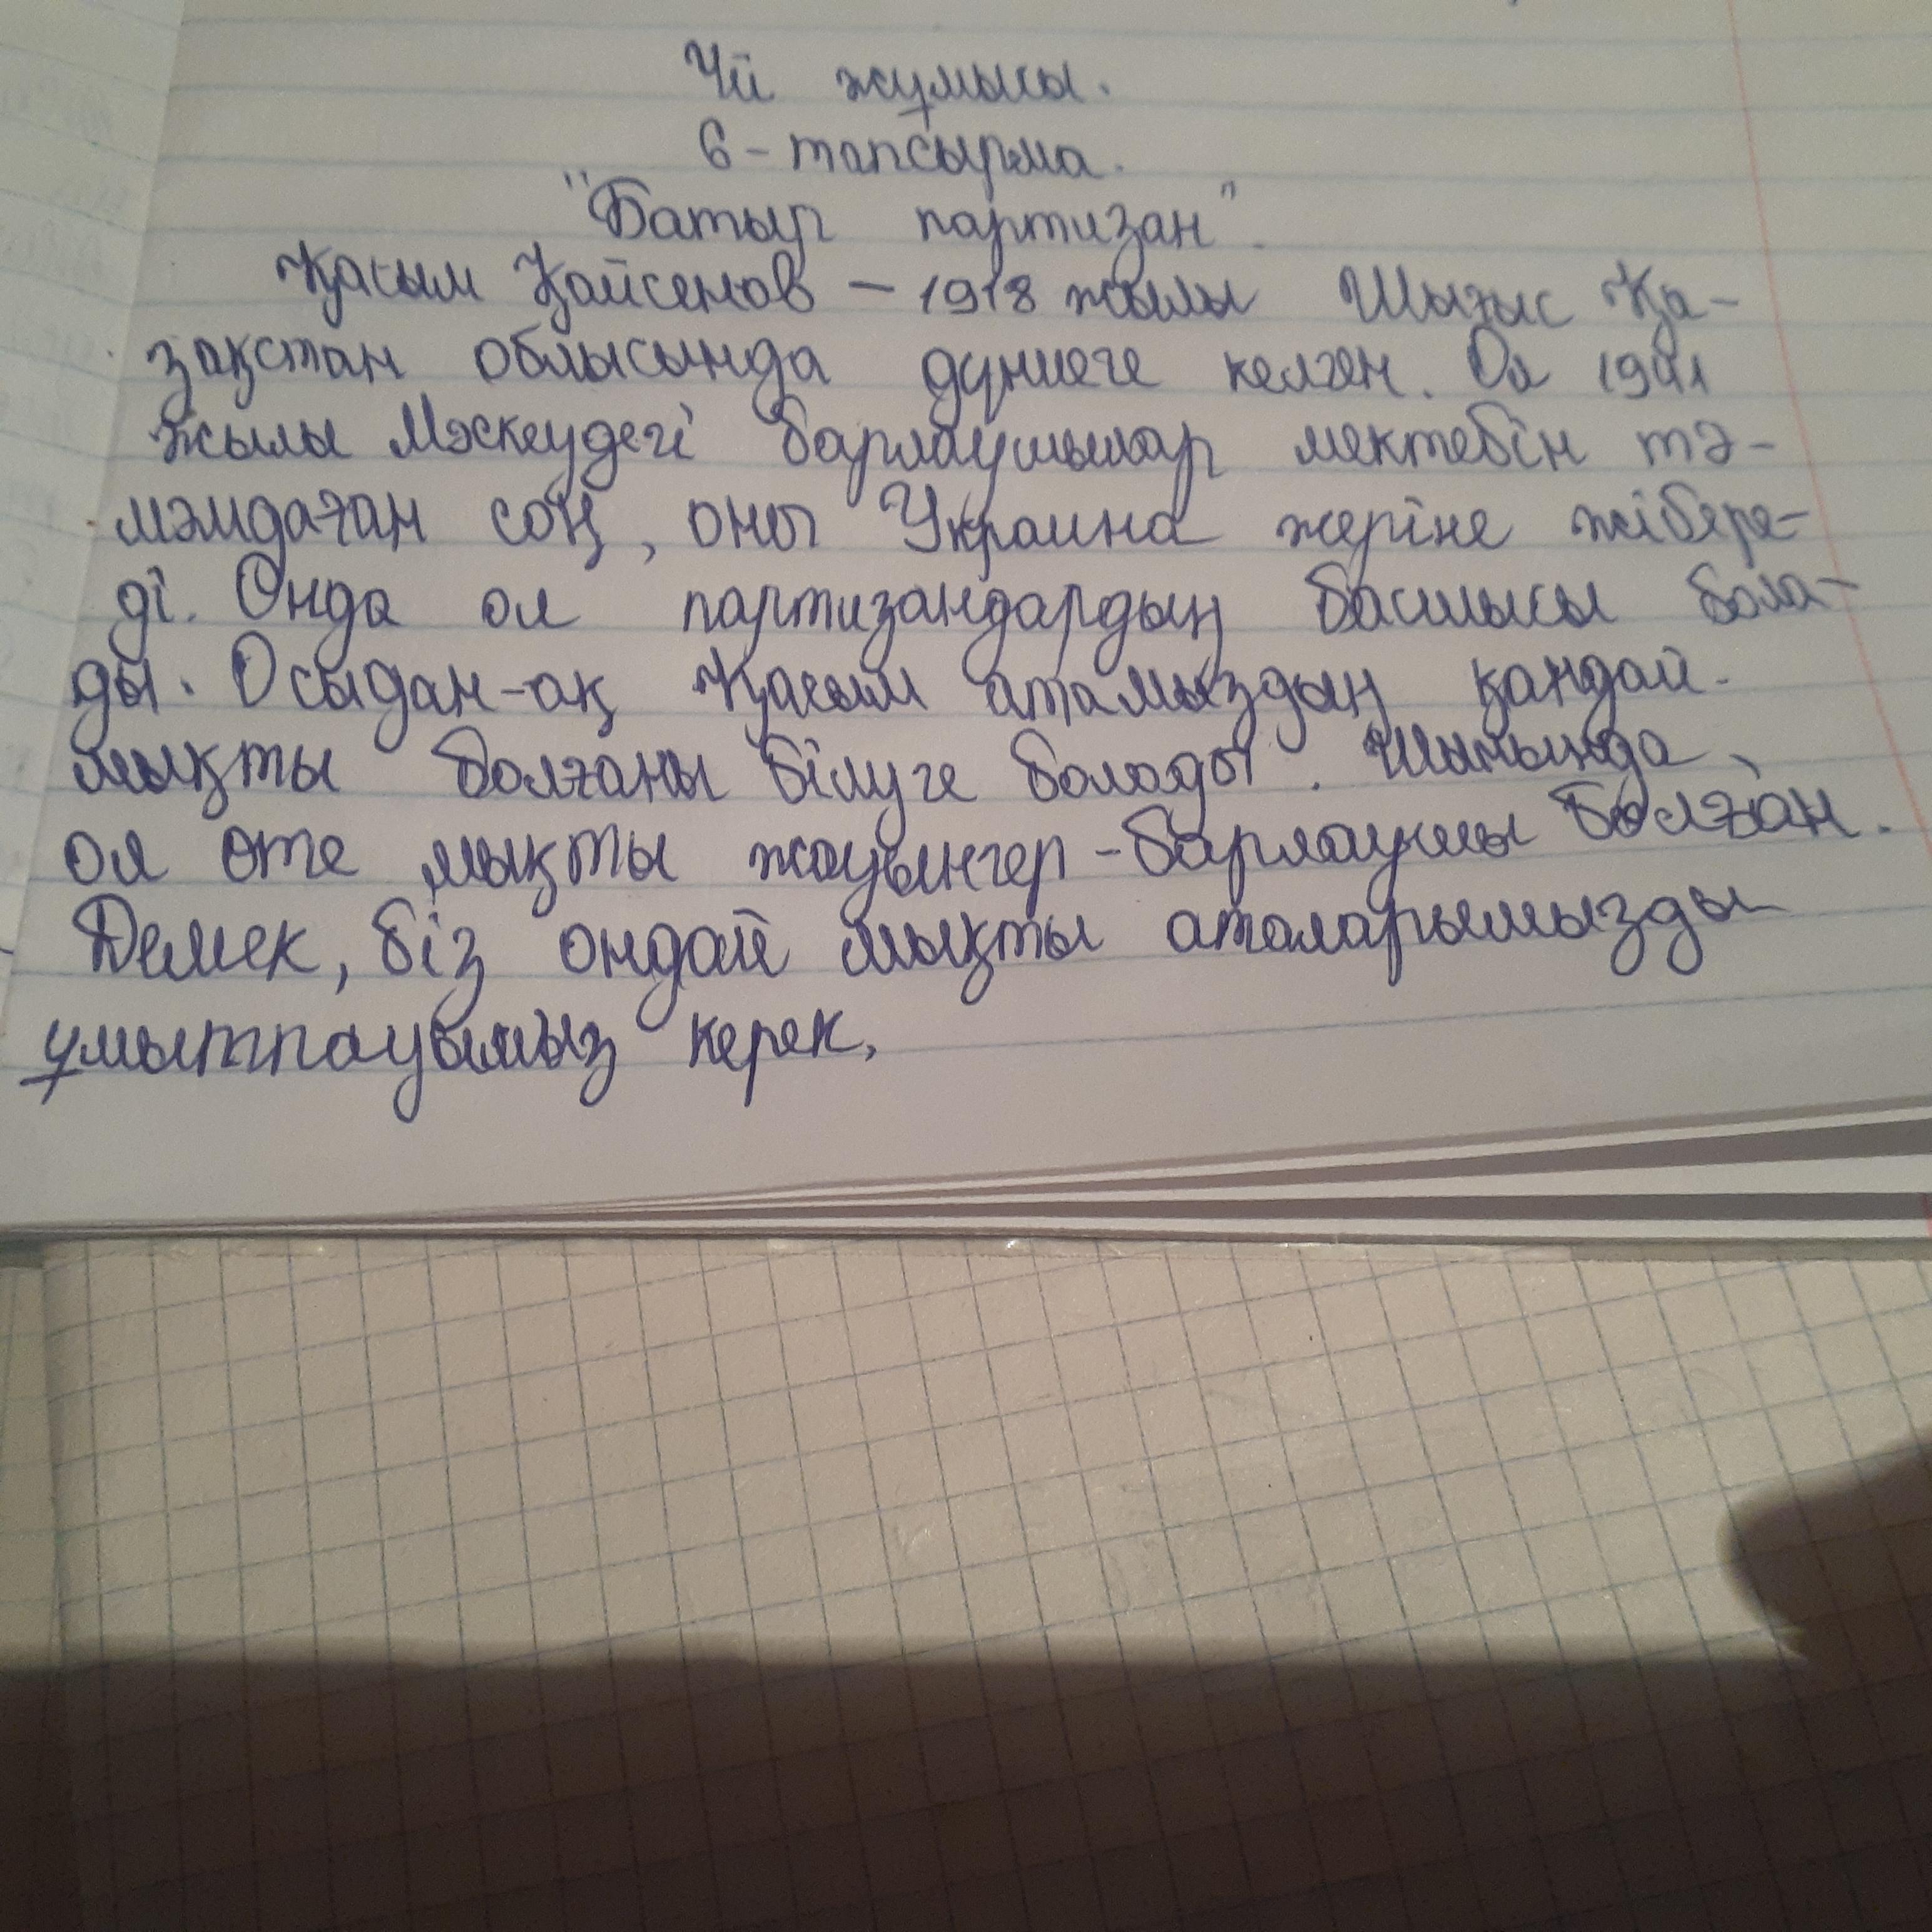 Үй жұмысы.
6-тапсырма.
"Батыр партизан".
Қасым Қайсенов – 1918 жылы Шығыс Қа-
зақстан облысында дүниеге келген. Ол 1941
жылы Мәскеудегі барлаушылар мектебін тә-
мәмдаған соң, оны Украина жеріне жібере-
ді. Онда ол партизандардың басшысы бола-
ды. Осыдан-ақ Қасым атамыздың қандай
мықты болғаны білуге болады. Шынында,
ол өте мықты жауынгер-барлаушы болған.
Демек, біз ондай мықты аталарымызды
ұмытпауымыз керек,